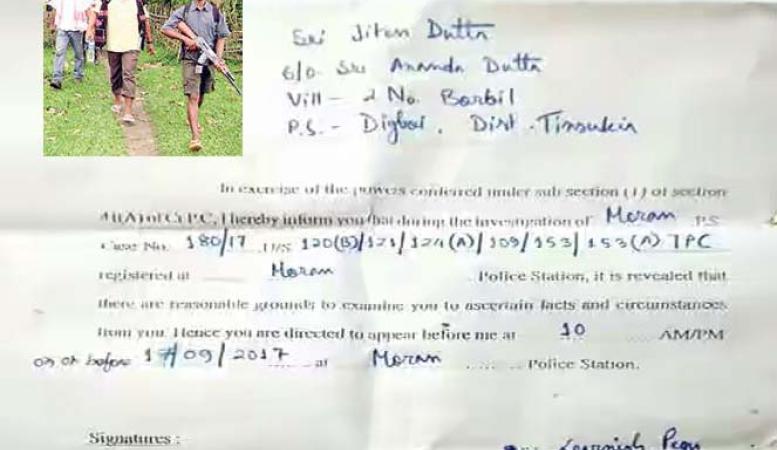 Sri Jiten Dutta
S/o Sri Ananda Dutta
Vill - 2 No. Borbil
P.S. - Digboi, Dist. Tinsukia
In exercise of the powers conferred under sub section (1) of section
41(A) of Cr.PC, I hereby inform you that during the investigation of Moran P.S
Case No. 180/17 U/S 120(B)/121/124(A)/109/153/153(A) IPC
registered at Moran Police Station, it is revealed that
there are reasonable grounds to examine you to ascertain facts and circumstances
from you. Hence you are directed to appear before me at 10 AM/PM
on or before 17/09/2017 at Moran Police Station.
Signatures :